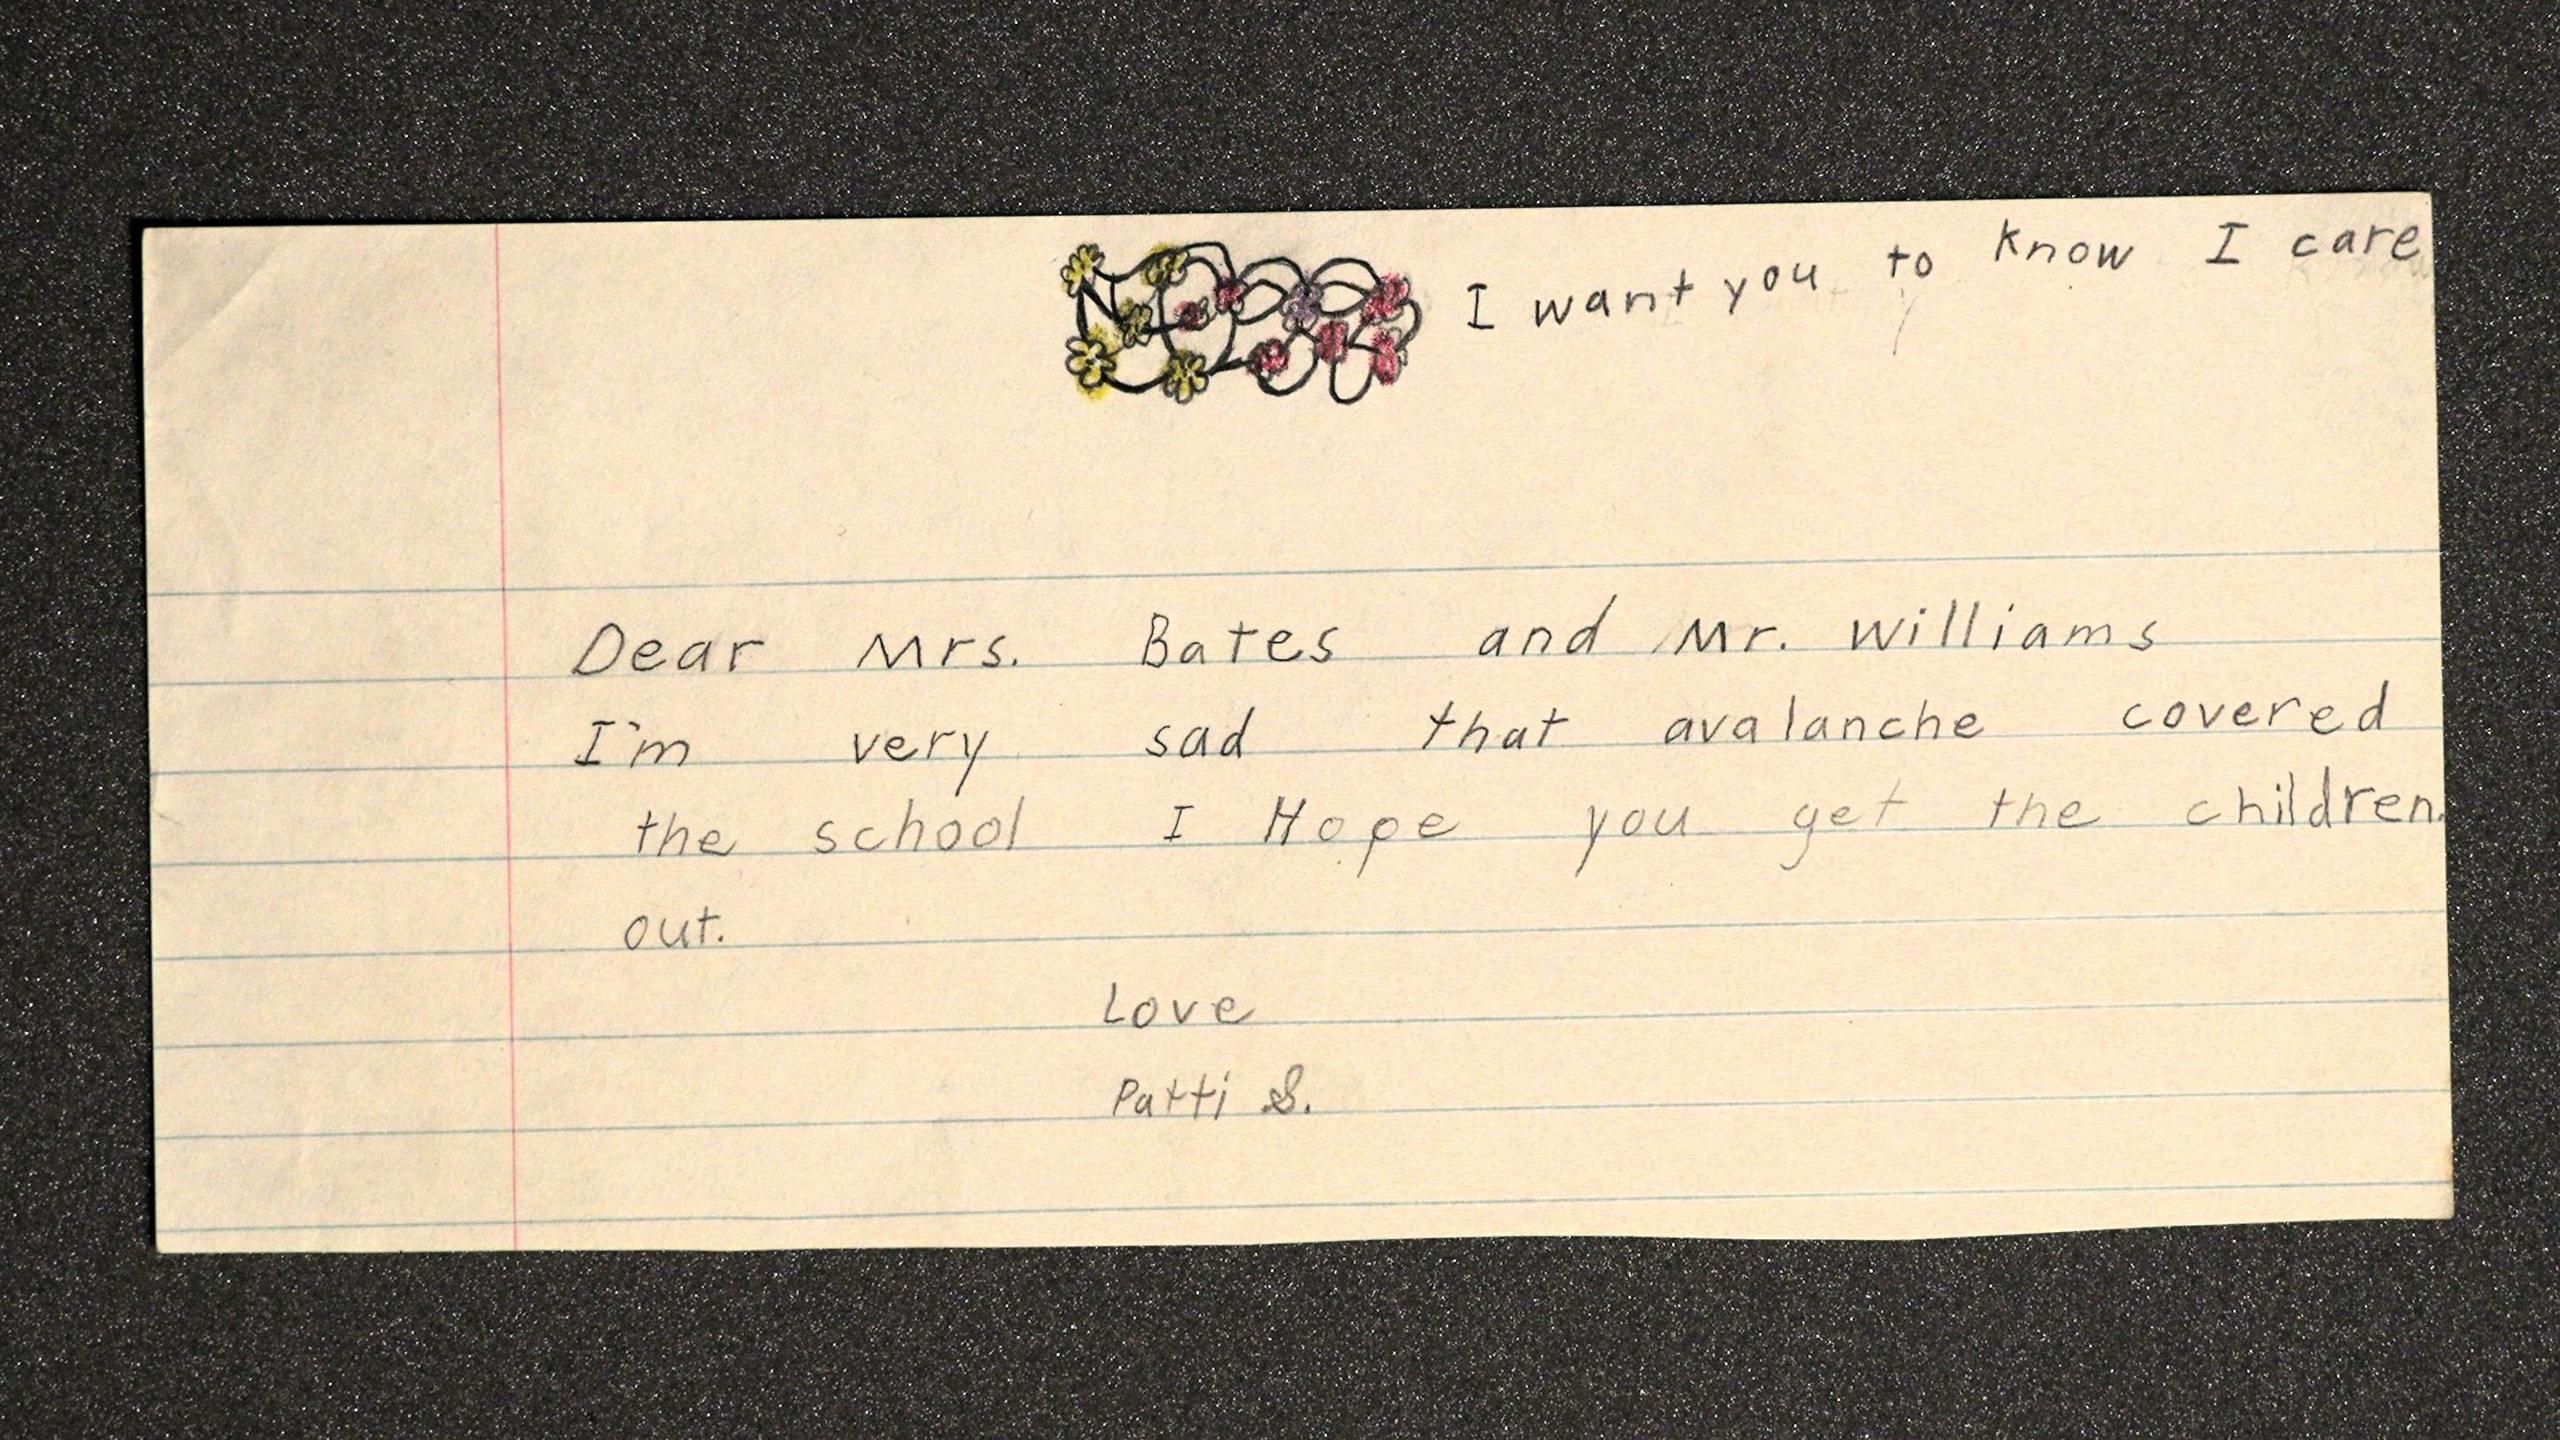 I want you to know I care
Dear Mrs. Bates and Mr. Williams
I'm very sad that avalanche covered
the school I Hope you get the children.
out.
Love
Patti S.